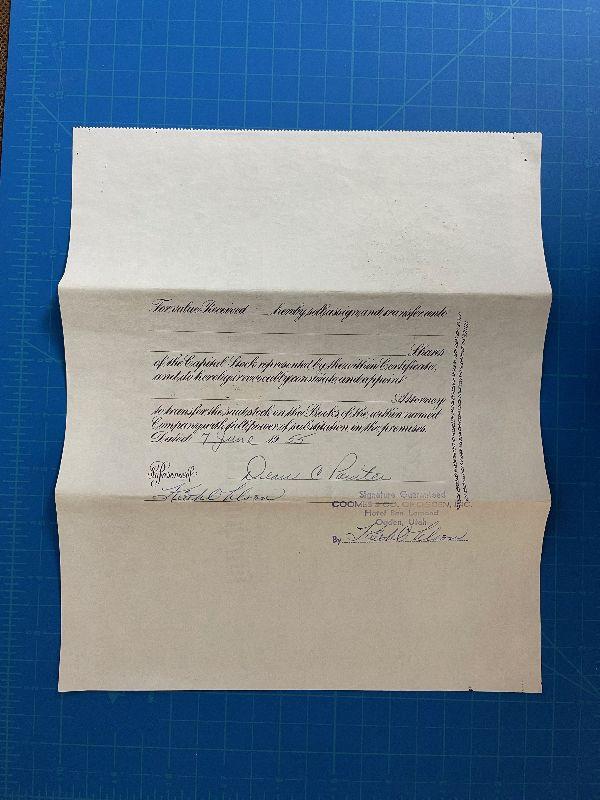 For value Received hereby sell, assign, and transfer unto
Shares
of the Capital Stock represented by the within Certificate,
and do hereby irrevocably constitute and appoint
Attorney
to transfer the said stock on the Books of the within named
Company with full power of substitution in the premises.
Dated 7 June 1955
In Presence of:
Signature Guaranteed
COOMBS & CO. OF OGDEN, INC.
Hotel Ben Lomond
Ogden, Utah
By